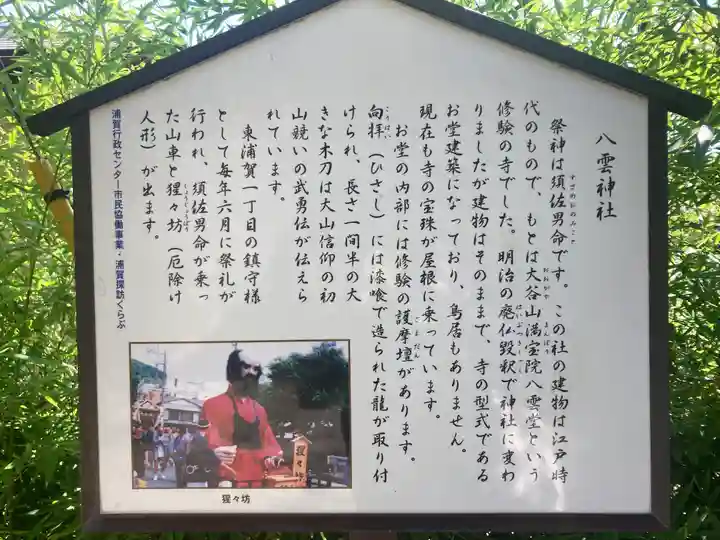 八雲神社
祭神は須佐男命です。この社の建物は江戸時
すさのおのみこと
代のもので、もとは大谷山満宝院八雲堂という
おおがや
まんぽう
修験の寺でした。明治の廃仏毀釈で神社に変わ
はいぶつきしゃく
りましたが建物はそのままで、寺の型式である
お堂建築になっており、鳥居もありません。
現在も寺の宝珠が屋根に乗っています。
お堂の内部には修験の護摩壇があります。
ごまだん
向拝(ひさし)には漆喰で造られた龍が取り付
こうはい
けられ、長さ一間半の大
きな木刀は大山信仰の初
山競いの武勇伝が伝えら
れています。
東浦賀一丁目の鎮守様
として毎年六月に祭礼が
行われ、須佐男命が乗っ
た山車と猩々坊(厄除け
しょうじょうぼう
人形)が出ます。
浦賀行政センター市民協働事業・浦賀探訪くらぶ
猩々坊
猩々坊